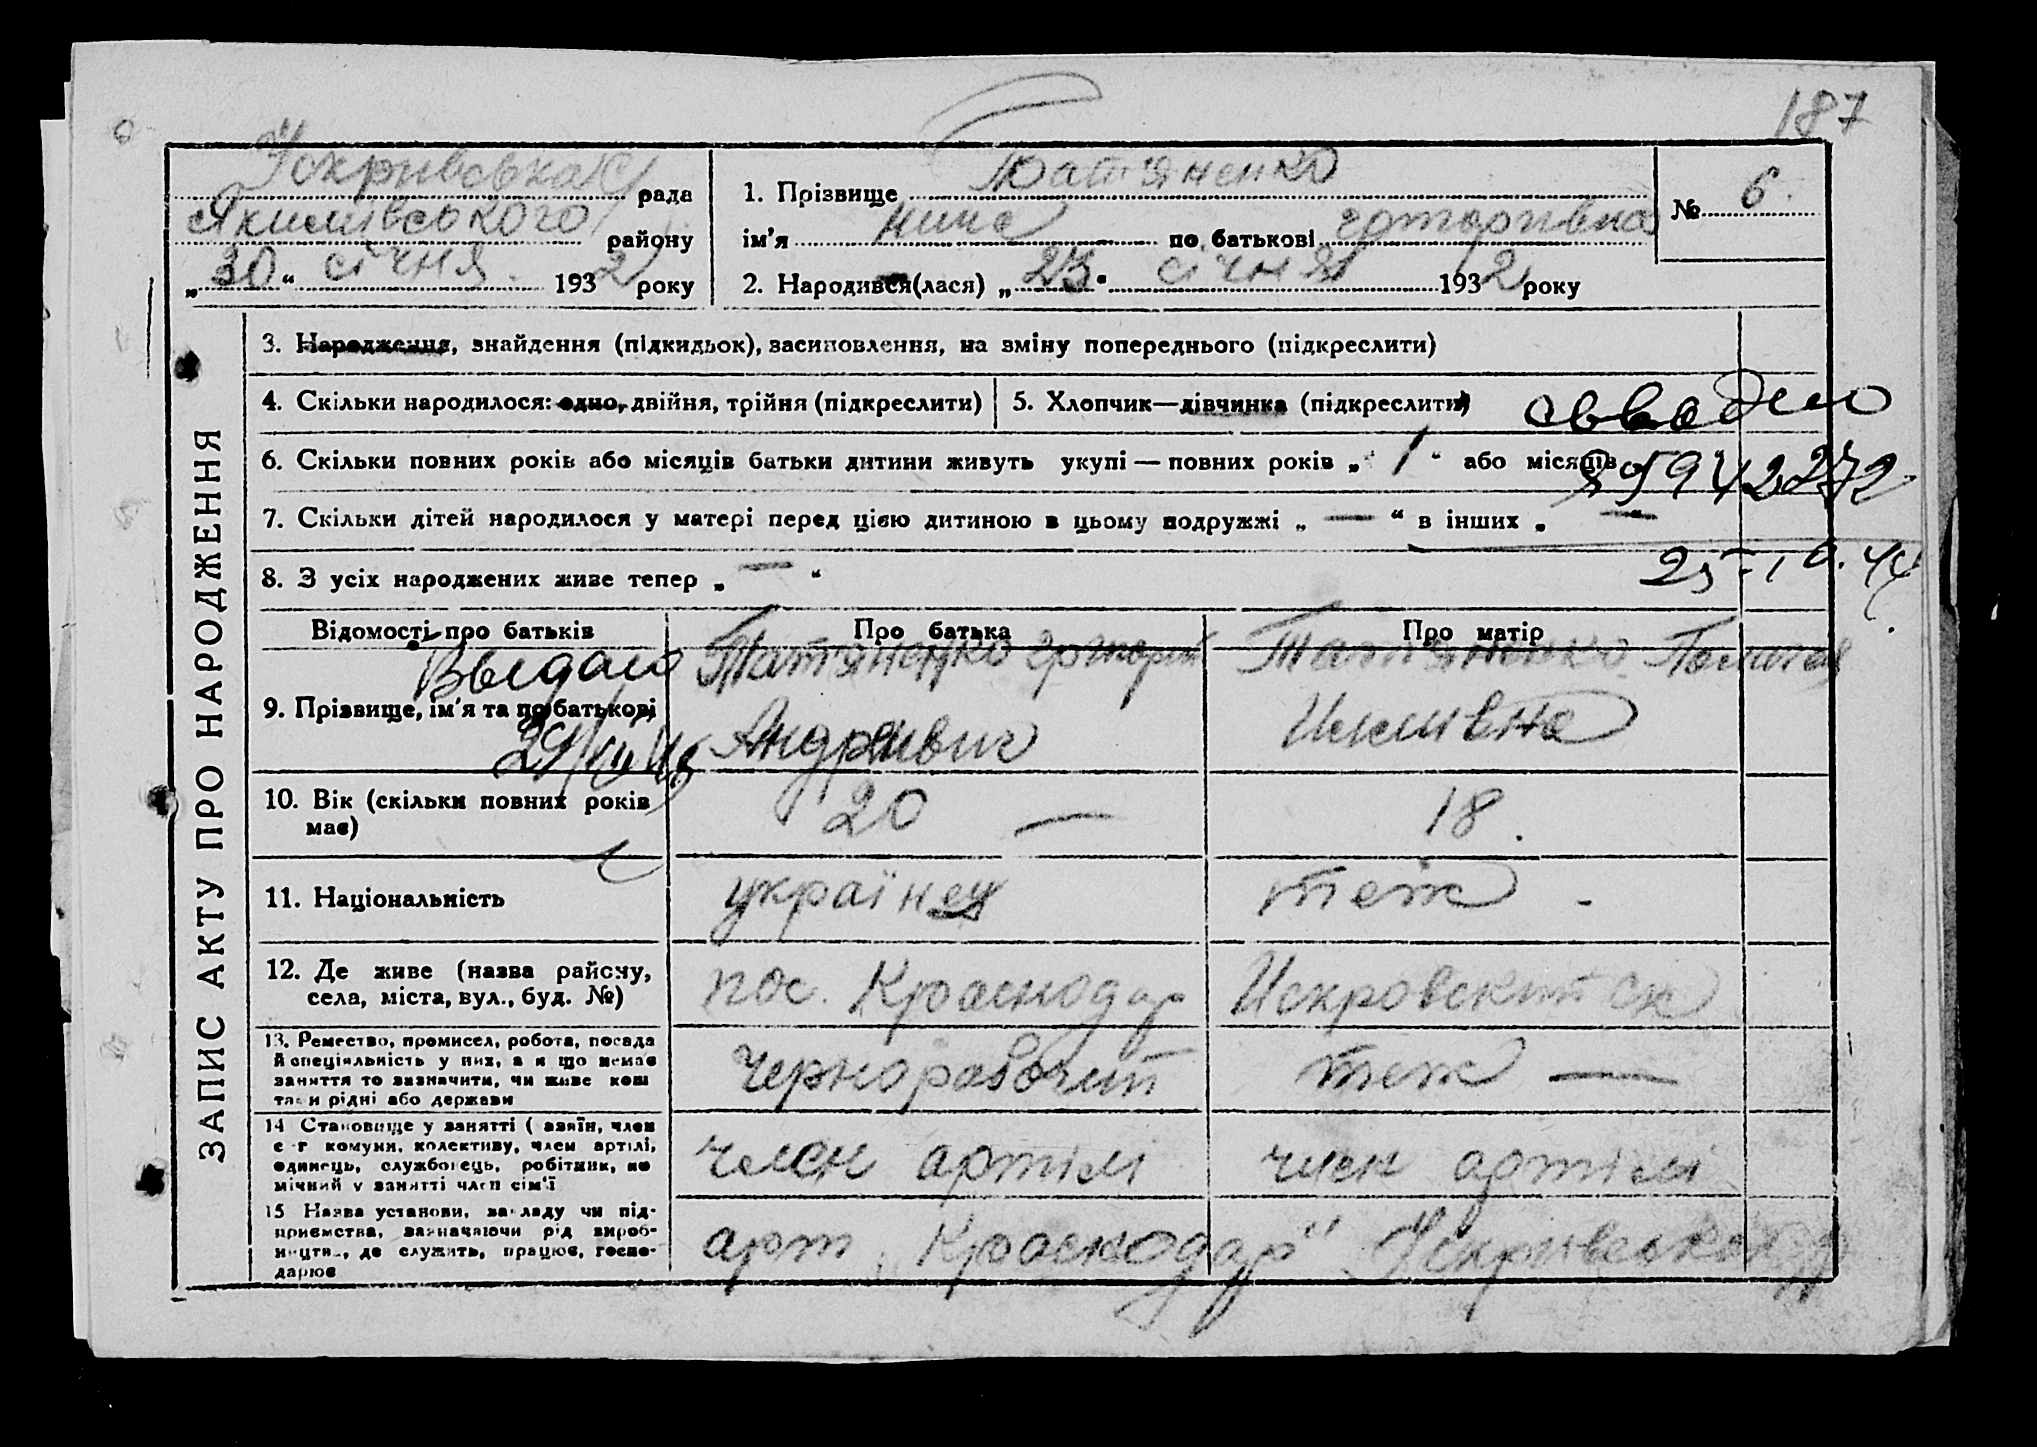 187
Искривська с/рада
Якимівського району
„30“ січня 1932 року
1. Прізвище Татьяненко
ім'я Нина по батькові
2. Народився(лася) „23“ січня 1932 року
№ 6.
ЗАПИС АКТУ ПРО НАРОДЖЕННЯ
3. Народження, знайдення (підкидьок), засиновлення, на зміну попереднього (підкреслити)
4. Скільки народилося: одно, двійня, трійня (підкреслити)
5. Хлопчик—дівчинка (підкреслити)
6. Скільки повних років або місяців батьки дитини живуть укупі — повних років „ 1 “ або місяців
7. Скільки дітей народилося у матері перед цією дитиною в цьому подружжі „ — “ в інших „ — “
8. З усіх народжених живе тепер „ — “
25-10.44
Відомості про батьків
Про батька
Про матір
Выдано
9. Прізвище, ім'я та по батькові
Татьяненко Григорий
Андрѣивич
Татьяненко
10. Вік (скільки повних років має)
20 —
18.
11. Національність
українец
теж -
12. Де живе (назва району,
села, міста, вул., буд. №)
пос. Краснодар
Искровский
13. Ремество, промисел, робота, посада
й спеціяльність у них, а якщо немає
заняття то визначити, чи живе кош
тами рідні або держави
чернорабочий
теж —
14 Становище у занятті (хазяїн, член
с-г комуни, колективу, член артілі,
одинець, службовець, робітник, по
мічний у занятті член сім'ї
член артілі
член артілі
15 Назва установи, закладу чи під-
приємства, зазначаючи рід вироб-
ництва, де служить, працює, госпо-
дарює
арт „Краснодар“